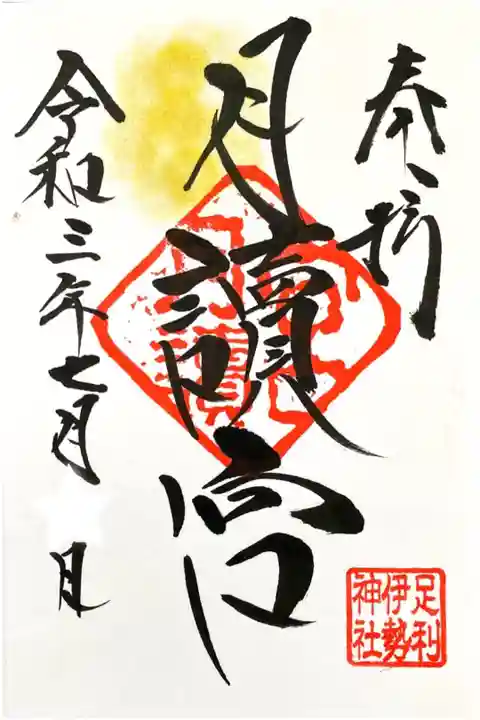 奉拝
月讀宮
令和三年七月 日
足利
伊勢
神社